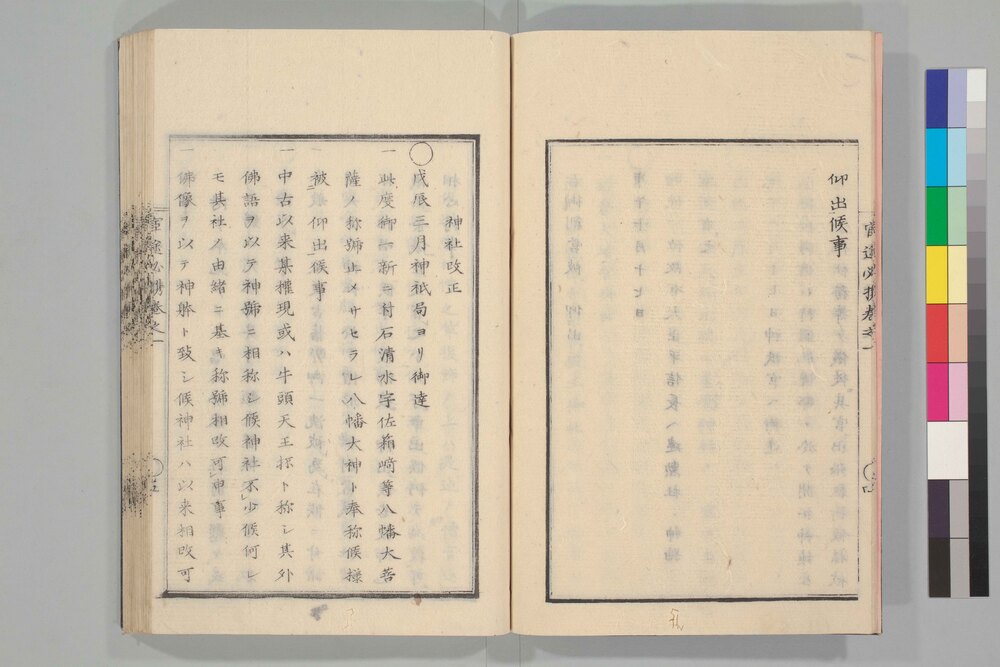 仰出候事
神社改正
○戊辰三月神祇局ヨリ御達
一此度御一新ニ付石清水宇佐箱﨑等八幡大菩
薩ノ称號止メサセラレ八幡大神ト奉称候様
被仰出候事
一中古以来某權現或ハ牛頭天王抔ト称シ其外
佛語ヲ以テ神號ニ相称シ候神社不少候何レ
モ其社ノ由緒ニ基キ称號相改可申事
一佛像ヲ以テ神躰ト致シ候神社ハ以来相改可